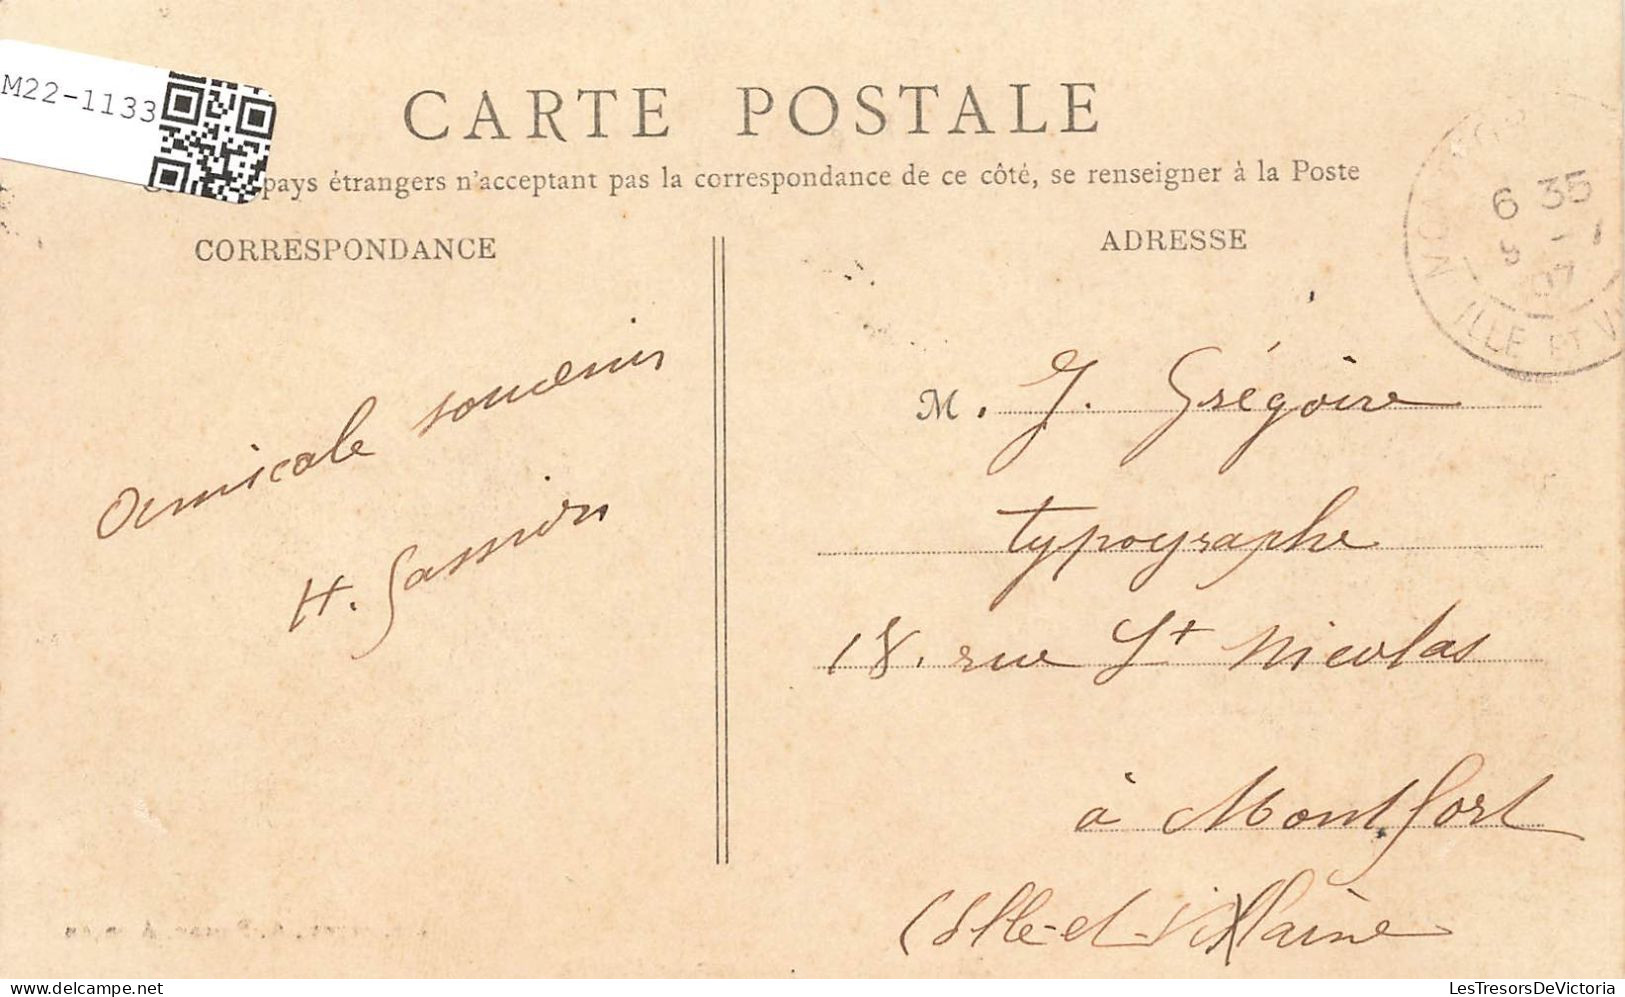 M22-1133
CARTE POSTALE
pays étrangers n'acceptant pas la correspondance de ce côté, se renseigner à la Poste
CORRESPONDANCE
ADRESSE
6 35
07
ILLE ET V
Amicale souvenir
H. Gassion
M. J. Grégoire
typographe
18. rue St Nicolas
à Montfort
(Ille-et-Vilaine
LesTresorsDeVictoria.com
LesTresorsDeVictoria